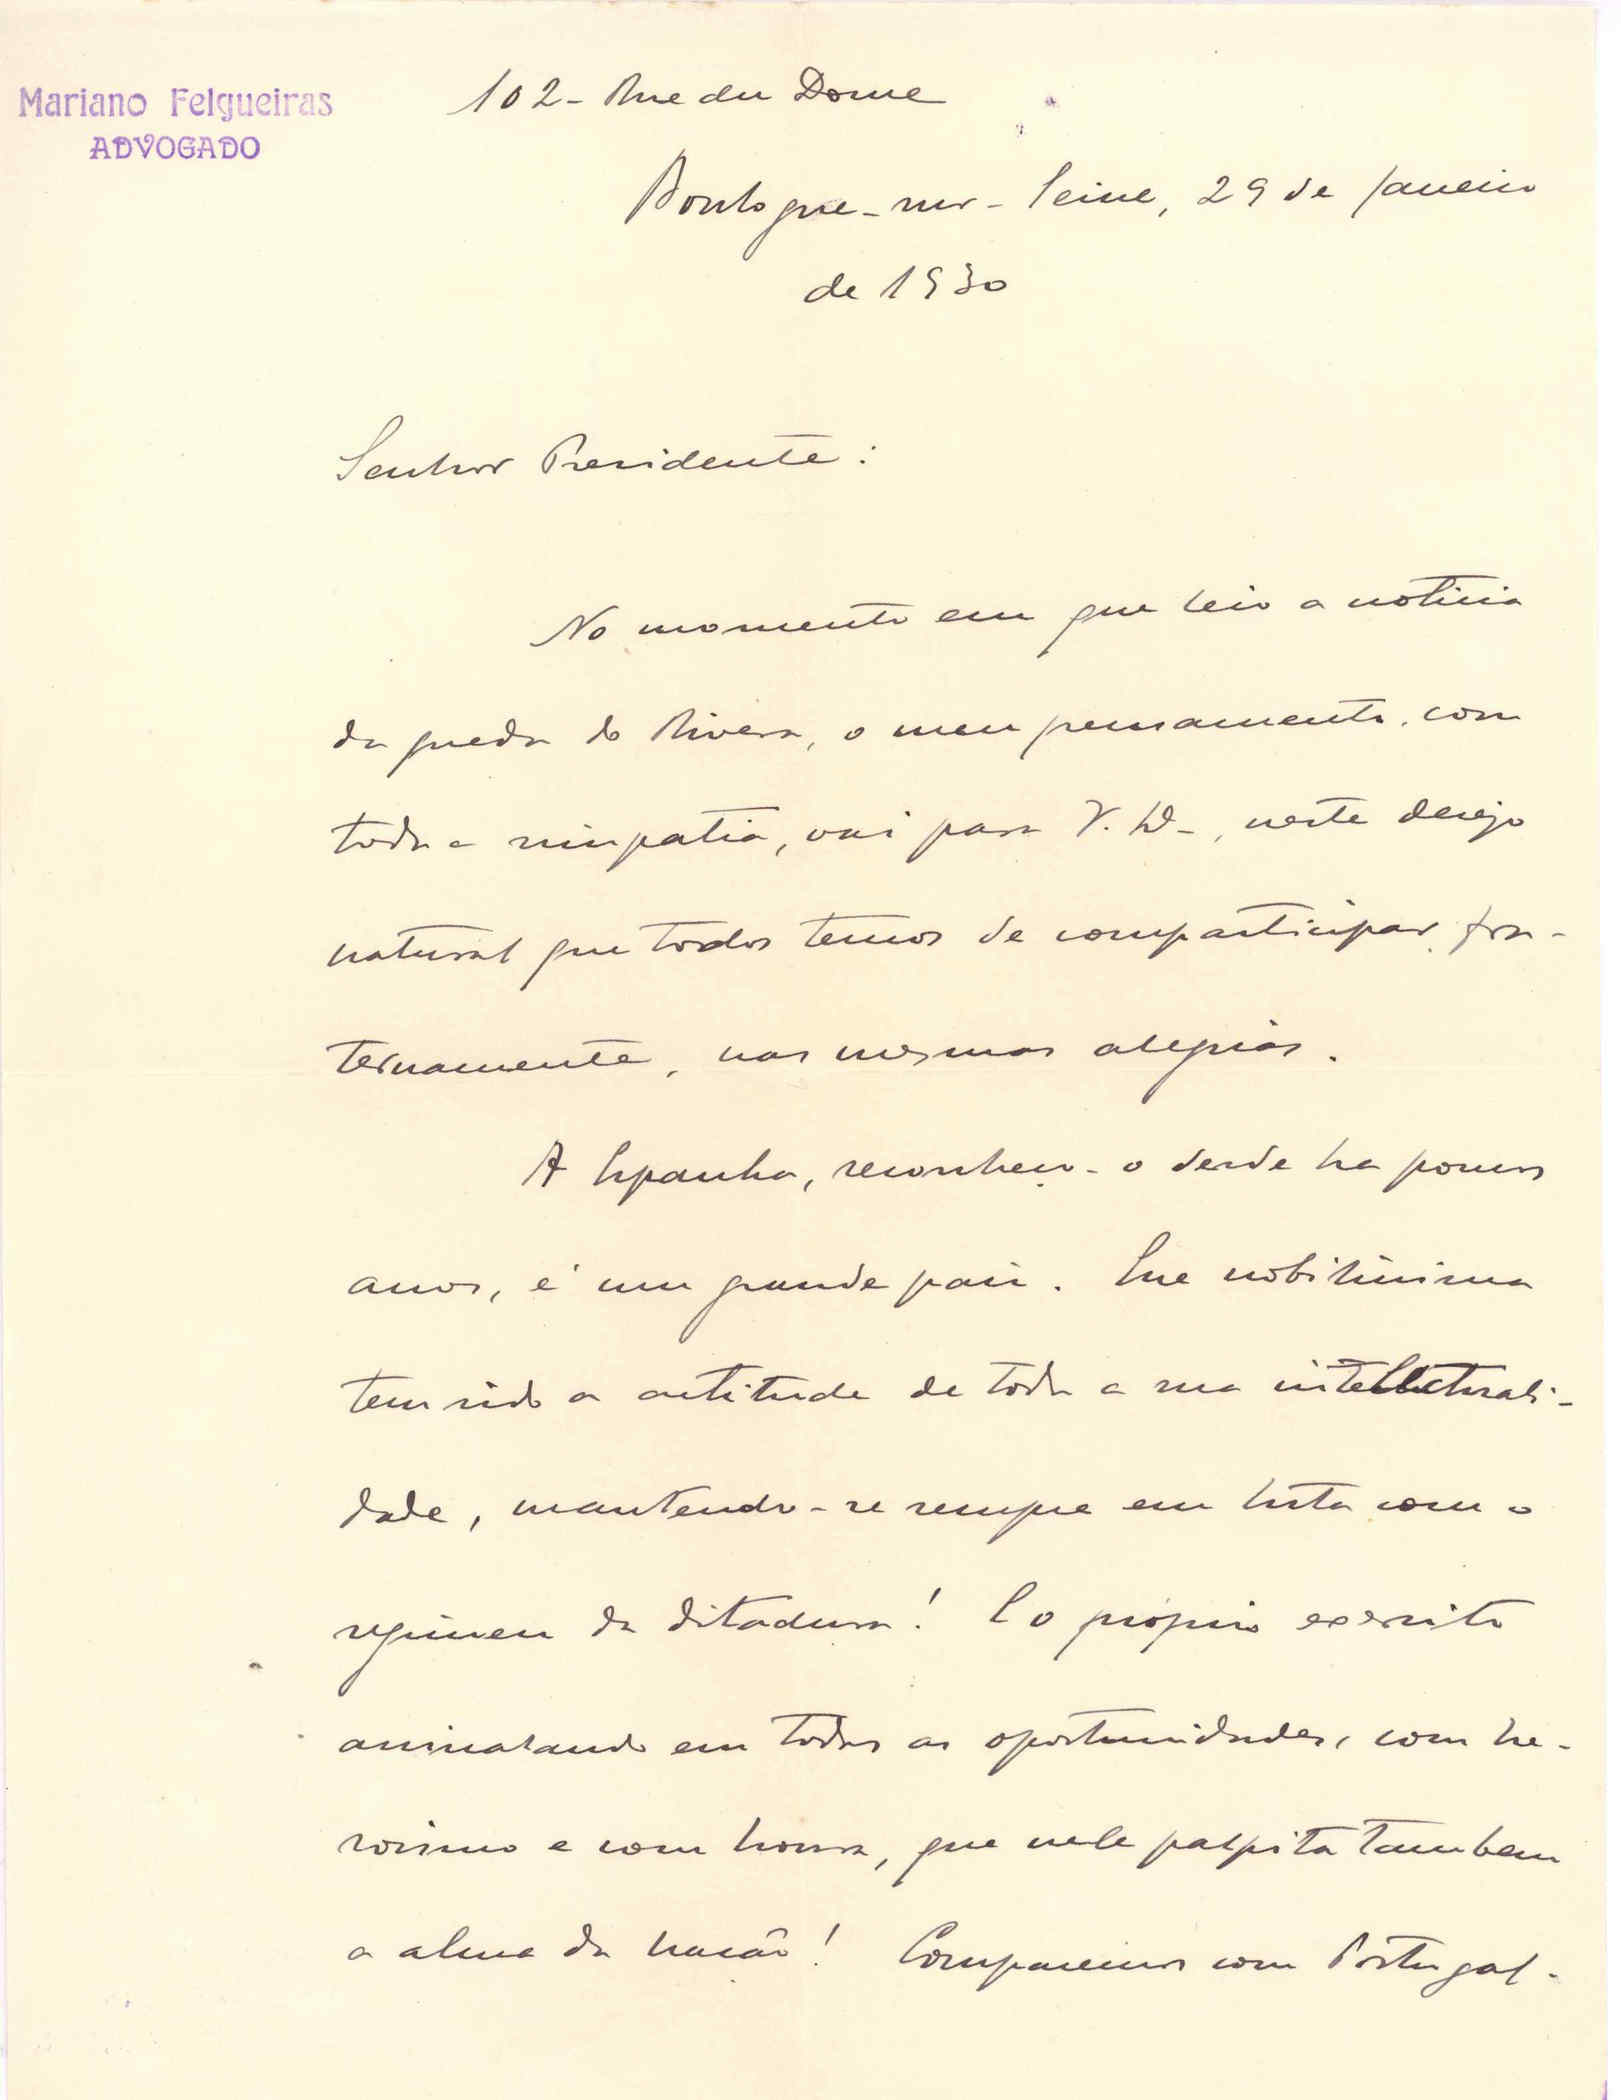 Mariano Felgueiras
ADVOGADO
102 - Rue du Dome
Boulogne-sur-Seine, 29 de Janeiro
de 1930
Senhor Presidente:
No momento em que leio a noticia
da queda do Rivera, o meu pensamento, com
toda a simpatia, vai para V. Ex-, neste desejo
natural que todos temos de comparticipar, fra-
ternamente, nas mesmas alegrias.
A Espanha, reconheço-o desde ha poucos
anos, é um grande pais. Que nobilissima
tem sido a actitude de toda a sua intellectuali-
dade, mantendo-se sempre em luta com o
regimen da ditadura! E o próprio exercito
assinalando em todas as oportunidades, com he-
roismo e com honra, que nele palpita tambem
a alma da nação! Comparemos com Portugal.